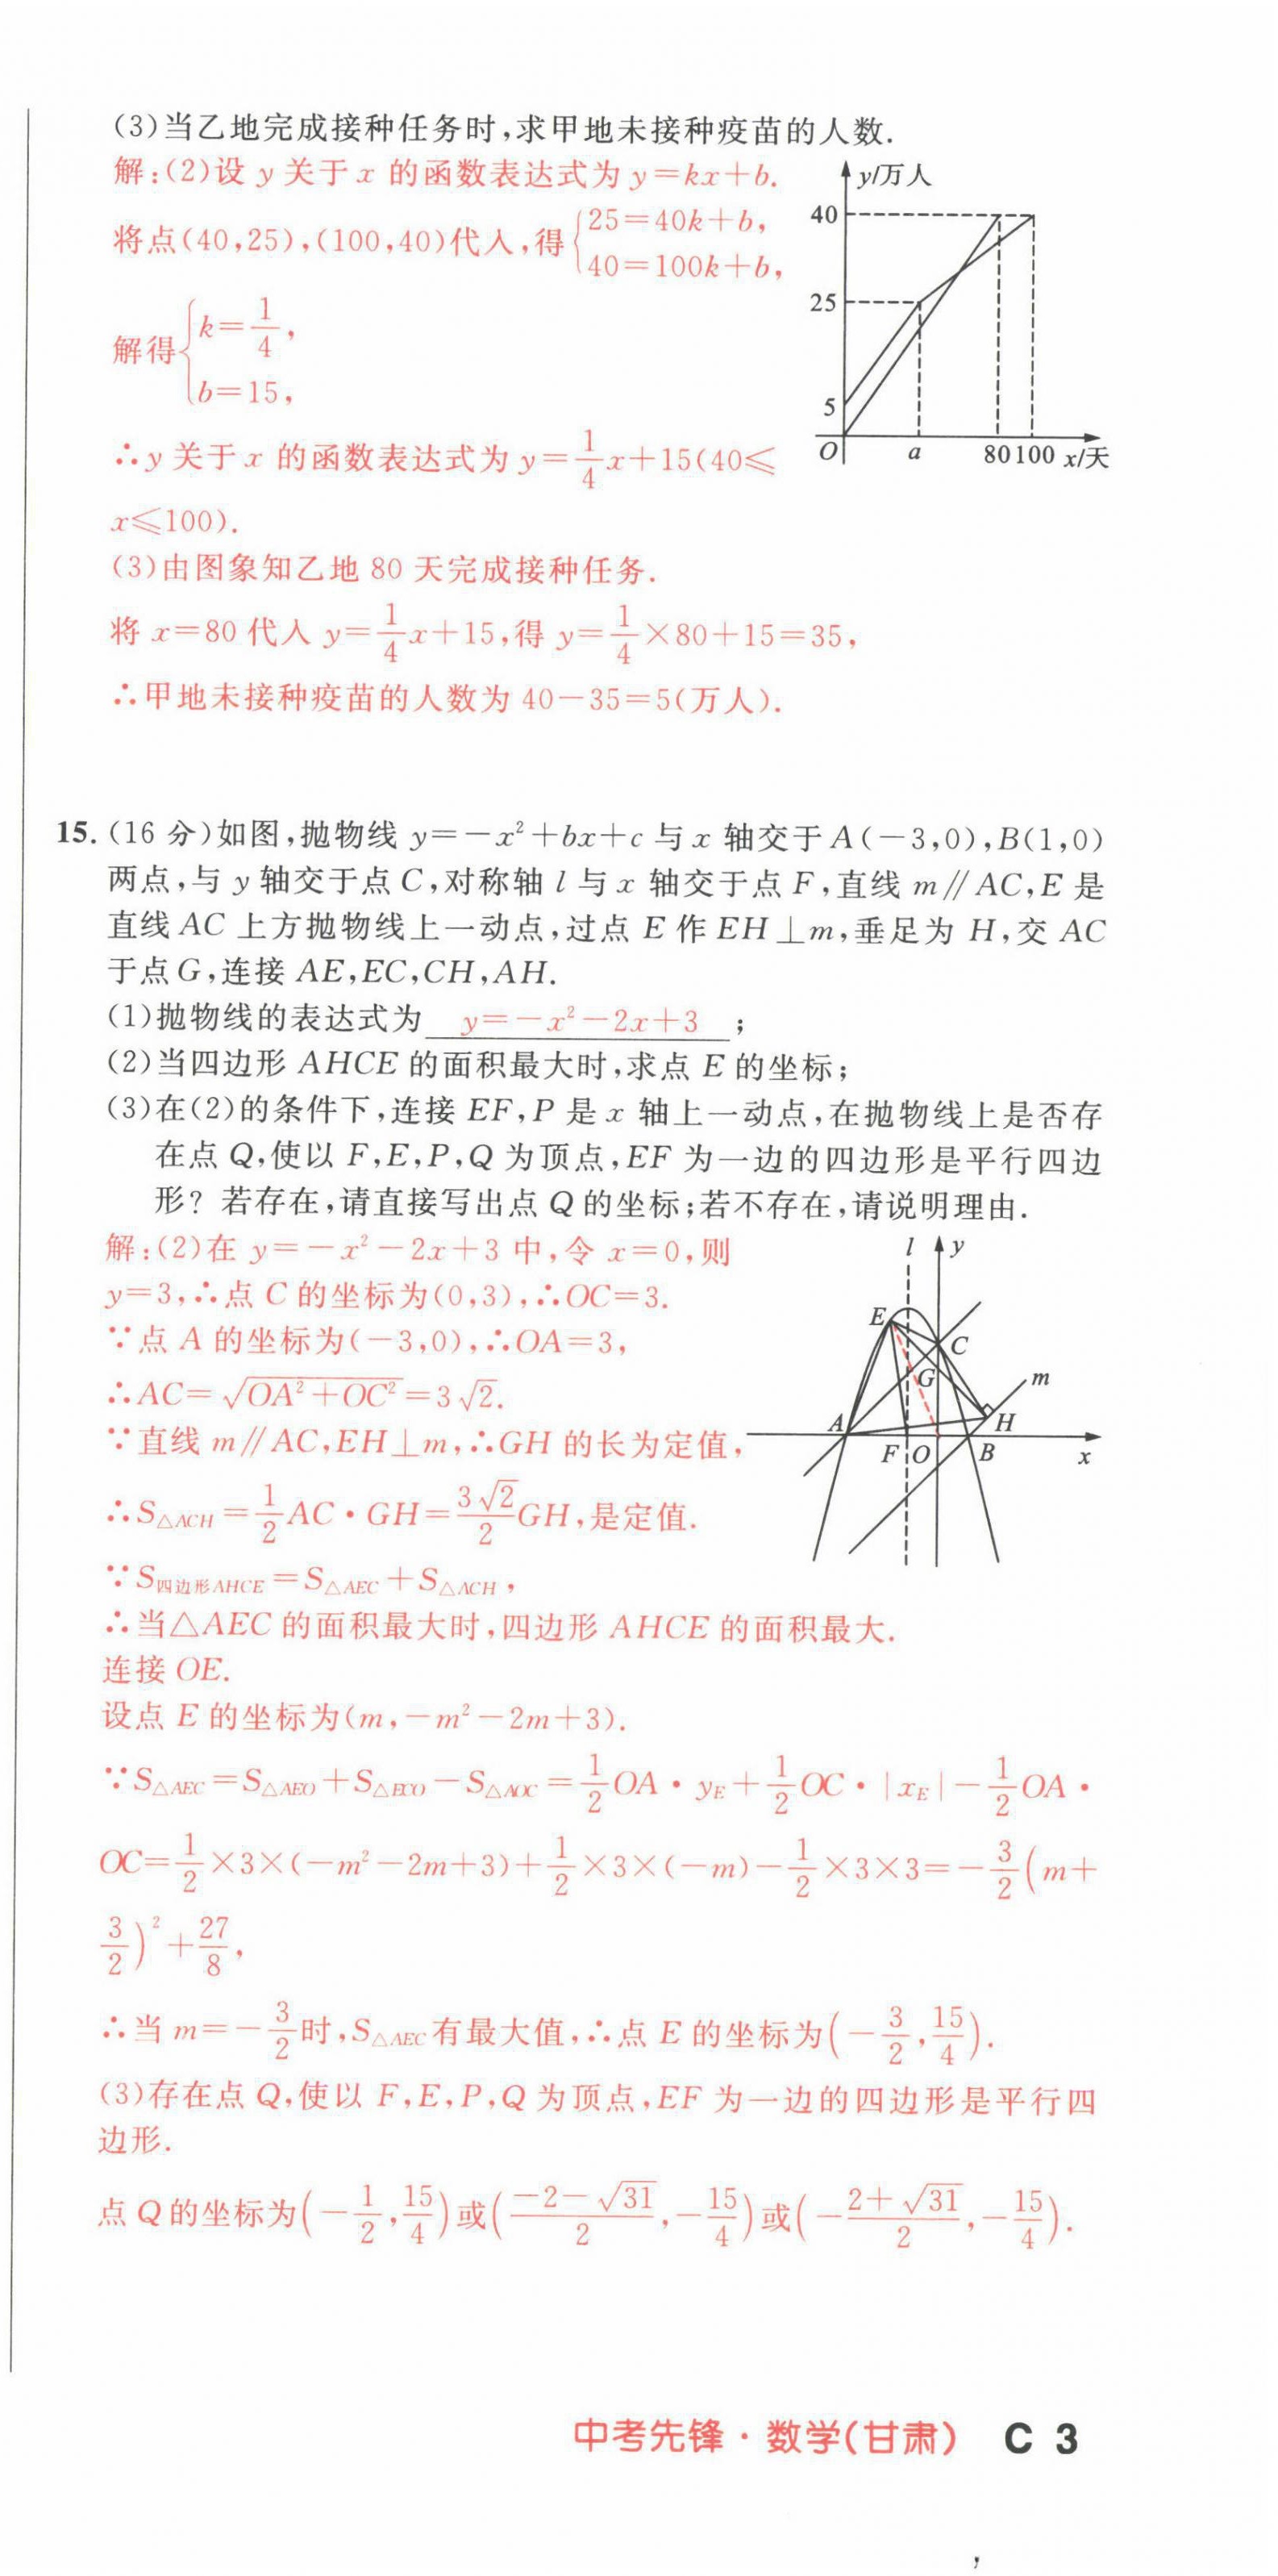 (3)当乙地完成接种任务时,求甲地未接种疫苗的人数.
解:(2)设 y 关于 x 的函数表达式为 y=kx+b.
将点(40,25),(100,40)代入,得{25=40k+b,
40=100k+b,
解得{k=1/4,
b=15,
∴y 关于 x 的函数表达式为 y=1/4x+15(40≤
x≤100).
y/万人
40
25
5
O
a
80
100
x/天
(3)由图象知乙地 80 天完成接种任务.
将 x=80 代入 y=1/4x+15,得 y=1/4×80+15=35,
∴甲地未接种疫苗的人数为 40-35=5(万人).
15.(16 分)如图,抛物线 y=-x²+bx+c 与 x 轴交于 A(-3,0),B(1,0)
两点,与 y 轴交于点 C,对称轴 l 与 x 轴交于点 F,直线 m∥AC,E 是
直线 AC 上方抛物线上一动点,过点 E 作 EH⊥m,垂足为 H,交 AC
于点 G,连接 AE,EC,CH,AH.
(1)抛物线的表达式为 y=-x²-2x+3 ;
(2)当四边形 AHCE 的面积最大时,求点 E 的坐标;
(3)在(2)的条件下,连接 EF,P 是 x 轴上一动点,在抛物线上是否存
在点 Q,使以 F,E,P,Q 为顶点,EF 为一边的四边形是平行四边
形？若存在,请直接写出点 Q 的坐标;若不存在,请说明理由.
解:(2)在 y=-x²-2x+3 中,令 x=0,则
y=3,∴点 C 的坐标为(0,3),∴OC=3.
∵点 A 的坐标为(-3,0),∴OA=3,
∴AC=√(OA²+OC²)=3√2.
∵直线 m∥AC,EH⊥m,∴GH 的长为定值,
∴S△ACH=1/2AC·GH=3√2/2GH,是定值.
∵S四边形AHCE=S△AEC+S△ACH,
l
y
E
C
G
m
A
H
F
O
B
x
∴当△AEC 的面积最大时,四边形 AHCE 的面积最大.
连接 OE.
设点 E 的坐标为(m,-m²-2m+3).
∵S△AEC=S△AEO+S△ECO-S△AOC=1/2OA·yE+1/2OC·|xE|-1/2OA·
OC=1/2×3×(-m²-2m+3)+1/2×3×(-m)-1/2×3×3=-3/2(m+
3/2)²+27/8,
∴当 m=-3/2时,S△AEC有最大值,∴点 E 的坐标为(-3/2,15/4).
(3)存在点 Q,使以 F,E,P,Q 为顶点,EF 为一边的四边形是平行四
边形.
点 Q 的坐标为(-1/2,15/4)或((-2-√31)/2,-15/4)或(-(2+√31)/2,-15/4).
中考先锋·数学(甘肃) C 3